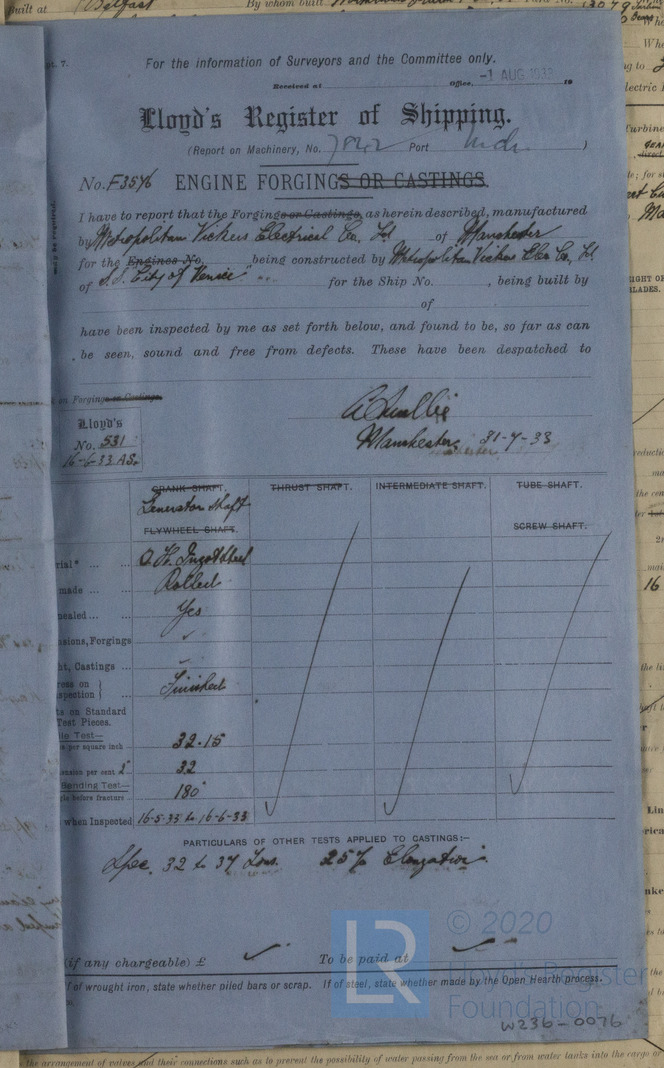 Built at Belfast By whom built
pt. 7.
For the information of Surveyors and the Committee only.
Received at Office, -1 AUG 1933 19
Lloyd's Register of Shipping.
(Report on Machinery, No. Port )
No. F3576 ENGINE FORGINGS OR CASTINGS.
I have to report that the Forgings or Castings, as herein described, manufactured
by Metropolitan Vickers Electrical Co., Ld. of Manchester
for the Engines No. being constructed by Metropolitan Vickers Elec Co., Ld.
of S.S. "City of Venice" for the Ship No. , being built by
of
have been inspected by me as set forth below, and found to be, so far as can
be seen, sound and free from defects. These have been despatched to
on Forgings or Castings.
Lloyd's
No. 531
16-6-33 A.S.
Manchester, 31-7-33
CRANK SHAFT. THRUST SHAFT. INTERMEDIATE SHAFT. TUBE SHAFT.
Generator shaft
FLYWHEEL SHAFT. SCREW SHAFT.
rial* ... ... O. H. Ingot Steel
made ... ... Rolled
nealed ... ... Yes
nsions, Forgings
ht, Castings ...
ress on
spection } ... Finished
ts on Standard
Test Pieces.
le Test—
s per square inch 32.15
ension per cent 2" 32
Bending Test— 180°
gle before fracture
when Inspected 16-5-33 to 16-6-33
PARTICULARS OF OTHER TESTS APPLIED TO CASTINGS:—
Spec. 32 to 37 Tons. 25% Elongation.
(if any chargeable) £ To be paid at
If of wrought iron, state whether piled bars or scrap. If of steel, state whether made by the Open Hearth process.
LR
© 2020
Lloyd's Register
Foundation
W236-0076
the arrangement of valves and their connections such as to prevent the possibility of water passing from the sea or from water tanks into the cargo or